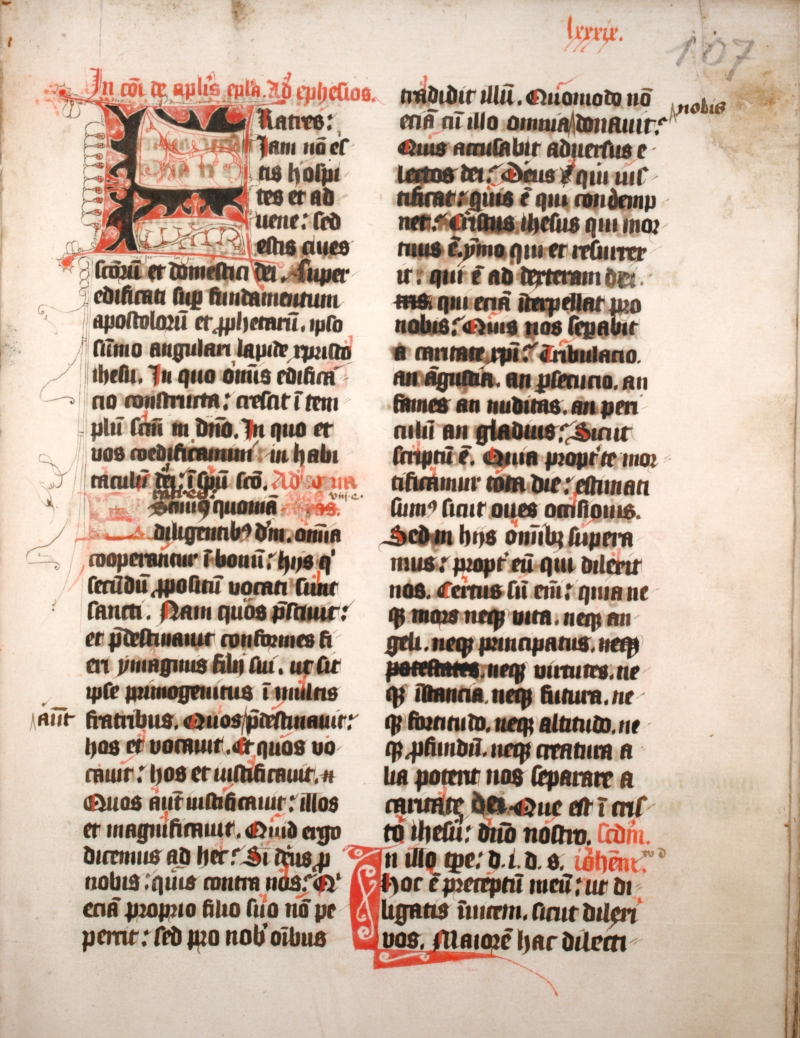 lxxxix.
107
In cõi de aplis epla. Ad ephesios.
Fratres:
Iam nõ es
tis hospi
tes et ad
uene: sed
estis ciues
scõrũ et domestici dei. Super
edificati sup fundamentum
apostolorũ et prophetarũ. ipso
sũmo angulari lapide xpristo
ihesu. In quo omĩs edifica
cio constructa: crescit ĩ tem
plũ scm̃ in dño. In quo et
vos coedificamini in habi
taculũ dei: ĩ spũ scõ. Ad
viii c.
Scimꝰ quoniã
diligentibꝰ dm̃. omĩa
cooperantur ĩ bonũ: hijs q'
secũdũ propositũ vocati sunt
sancti. Nam quos p̃sciuit:
et p̃destinauit conformes fi
eri ymaginis filij sui. ut sit
ipse primogenitus ĩ multis
aũt
fratribus. Quos p̃destinauit:
hos et vocauit. Et quos vo
cauit: hos et iustificauit.
Quos aũt iustificauit: illos
et magnificauit. Quid ergo
dicemus ad hec: Si deus p
nobis: quis contra nos: Q'
eciã proprio filio suo nõ pe
percit: sed pro nob' oĩbus
tradidit illũ. Quomodo nõ
eciã cũ illo omnia donauit:
nobis
Quis accusabit aduersus e
lectos dei: Deus ẽ qui ius
tificat: quis ẽ qui condemp
net: Cristus ihesus qui mor
tuus ẽ. ymo qui et resurrex
it: qui ẽ ad dexteram dei
qui eciã ĩterpellat pro
nobis: Quis nos sepabit
a caritate xpi: Tribulacio.
an ãgustia. an psecucio. an
fames an nuditas. an peri
culũ an gladius: Sicut
scriptũ ẽ. Quia propt' te mor
tificamur tota die: estimati
sumꝰ sicut oues occisionis.
Sed in hijs omĩbꝫ supera
mus: propt' eũ qui dilexit
nos. Certus sũ em̃: quia ne
qꝫ mors neqꝫ vita. neqꝫ an
geli. neqꝫ principatus. neqꝫ
potestates. neqꝫ virtutes. ne
qꝫ ĩstancia. neqꝫ futura. ne
qꝫ fortitudo. neqꝫ altitudo. ne
qꝫ profundũ. neqꝫ creatura a
lia poterit nos separare a
caritate dei. Que est ĩ cris
to ihesu: dño nostro. scdm.
In illo tpe: d. i. d. s. iohem̃.
hoc ẽ preceptũ meũ: ut di
ligatis ĩuicem. sicut dilexi
vos. Maiorẽ hac dilecti